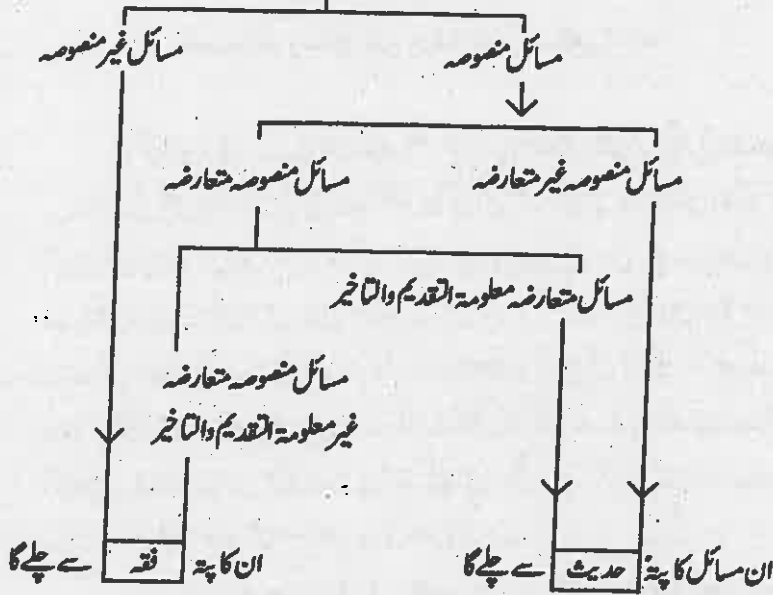 مسائل منصوصہ
مسائل غیر منصوصہ
مسائل منصوصہ غیر متعارضہ
مسائل منصوصہ متعارضہ
مسائل متعارضہ معلومۃ التقدیم والتاخیر
مسائل منصوصہ متعارضہ
غیر معلومۃ التقدیم والتاخیر
ان مسائل کا پتۂ حدیث سے چلے گا
ان کا پتہ فقہ سے چلے گا